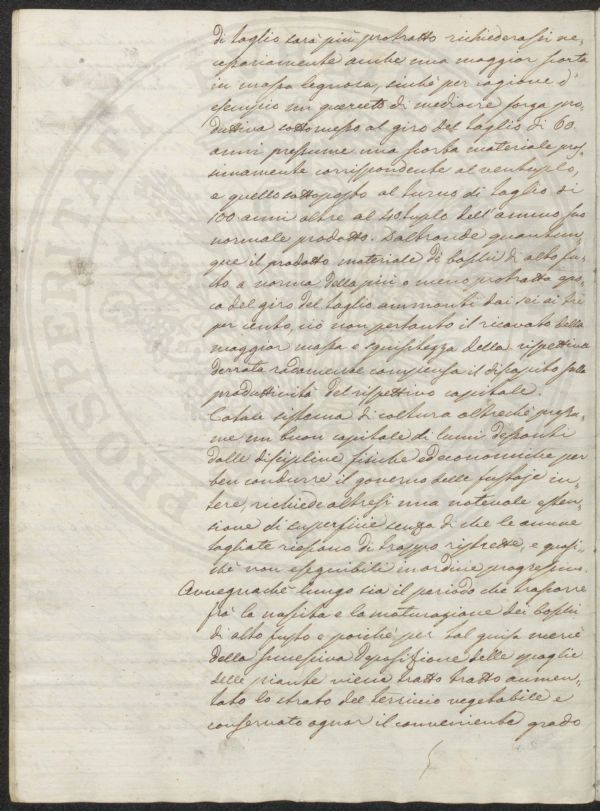 di taglio sarà più protratto richiederassi ne-
cessariamente anche una maggior scorta
in massa legnosa, sicchè per ragione d'
esempio un querceto di mediocre forza pro-
duttiva sottomesso al giro del taglio di 60
anni presume una scorta materiale pros-
simamente corrispondente al ventuplo,
e quello sottoposto al turno di taglio di
100 anni oltre al 40tuplo dell'annuo suo
normale prodotto. D'altronde quantun-
que il prodotto materiale di boschi di alto fu-
sto a norma della più o meno protratta epo-
ca del giro del taglio ammonti dai sei ai tre
per cento, ciò non pertanto il ricavato della
maggior massa e squisitezza della rispettiva
derrata radamente compensa il discapito sulla
produttività del rispettivo capitale.
Cotale sistema di coltura altrechè presu-
me un buon capitale di lumi desonti
dalle discipline fisiche ed economiche per
ben condurre il governo delle fustaje in-
tere, richiede altresì una notevole esten-
sione di superficie senza di che le annue
tagliate riescono di troppo ristrette, e quasi-
chè non eseguibili in ordine progressivo.
Avvegnachè lungo sia il periodo che trascorre
frà la nascita e la maturazione dei boschi
di alto fusto e poichè per tal guisa mercè
della successiva deposizione delle spoglie
delle piante viene tratto tratto aumen-
tato lo strato del terriccio vegetabile e
conservato ognor il conveniente grado
PROSPERITATI